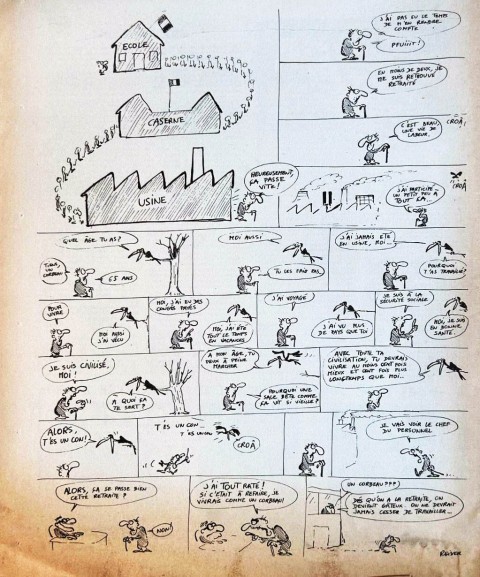 ECOLE
CASERNE
USINE
HEUREUSEMENT,
ÇA PASSE
VITE!
J'AI PAS EU LE TEMPS
DE M'EN RENDRE
COMPTE
PFUIIT!
EN MOINS DE DEUX, JE
ME SUIS RETROUVÉ
RETRAITÉ
C'EST BEAU,
UNE VIE DE
LABEUR.
CROÂ,
J'AI PARTICIPÉ
UN PETIT PEU À
TOUT ÇA...
CROÂ
QUEL ÂGE TU AS?
TIENS,
UN
CORBEAU
65 ANS
MOI AUSSI
TU LES FAIS PAS.
J'AI JAMAIS ÉTÉ
EN USINE, MOI...
POURQUOI
T'AS TRAVAILLÉ?
POUR
VIVRE
MOI AUSSI
J'AI VÉCU
MOI, J'AI EU DES
CONGÉS PAYÉS
MOI, J'AI ÉTÉ
TOUT LE TEMPS
EN VACANCES
J'AI VOYAGÉ
J'AI VU PLUS
DE PAYS QUE TOI
JE SUIS À LA
SÉCURITÉ SOCIALE
MOI, JE SUIS
EN BONNE
SANTÉ.
JE SUIS CIVILISÉ,
MOI!
À QUOI ÇA
TE SERT?
À MON ÂGE, TU
PEUX À PEINE
MARCHER
POURQUOI UNE
SALE BÊTE COMME
ÇA VIT SI VIEILLE?
AVEC TOUTE TA
CIVILISATION, TU DEVRAIS
VIVRE AU MOINS CENT FOIS
MIEUX ET CENT FOIS PLUS
LONGTEMPS QUE MOI...
ALORS,
T'ES UN CON!
T'ES UN CON...
T'ES UN CON
CROÂ
JE VAIS VOIR LE CHEF
DU PERSONNEL
ALORS, ÇA SE PASSE BIEN
CETTE RETRAITE?
NON!
J'AI TOUT RATÉ!
SI C'ÉTAIT À REFAIRE, JE
VIVRAIS COMME UN CORBEAU!
UN CORBEAU???
DÈS QU'ON A LA RETRAITE, ON
DEVIENT GÂTEUX. ON NE DEVRAIT
JAMAIS CESSER DE TRAVAILLER...
REISER